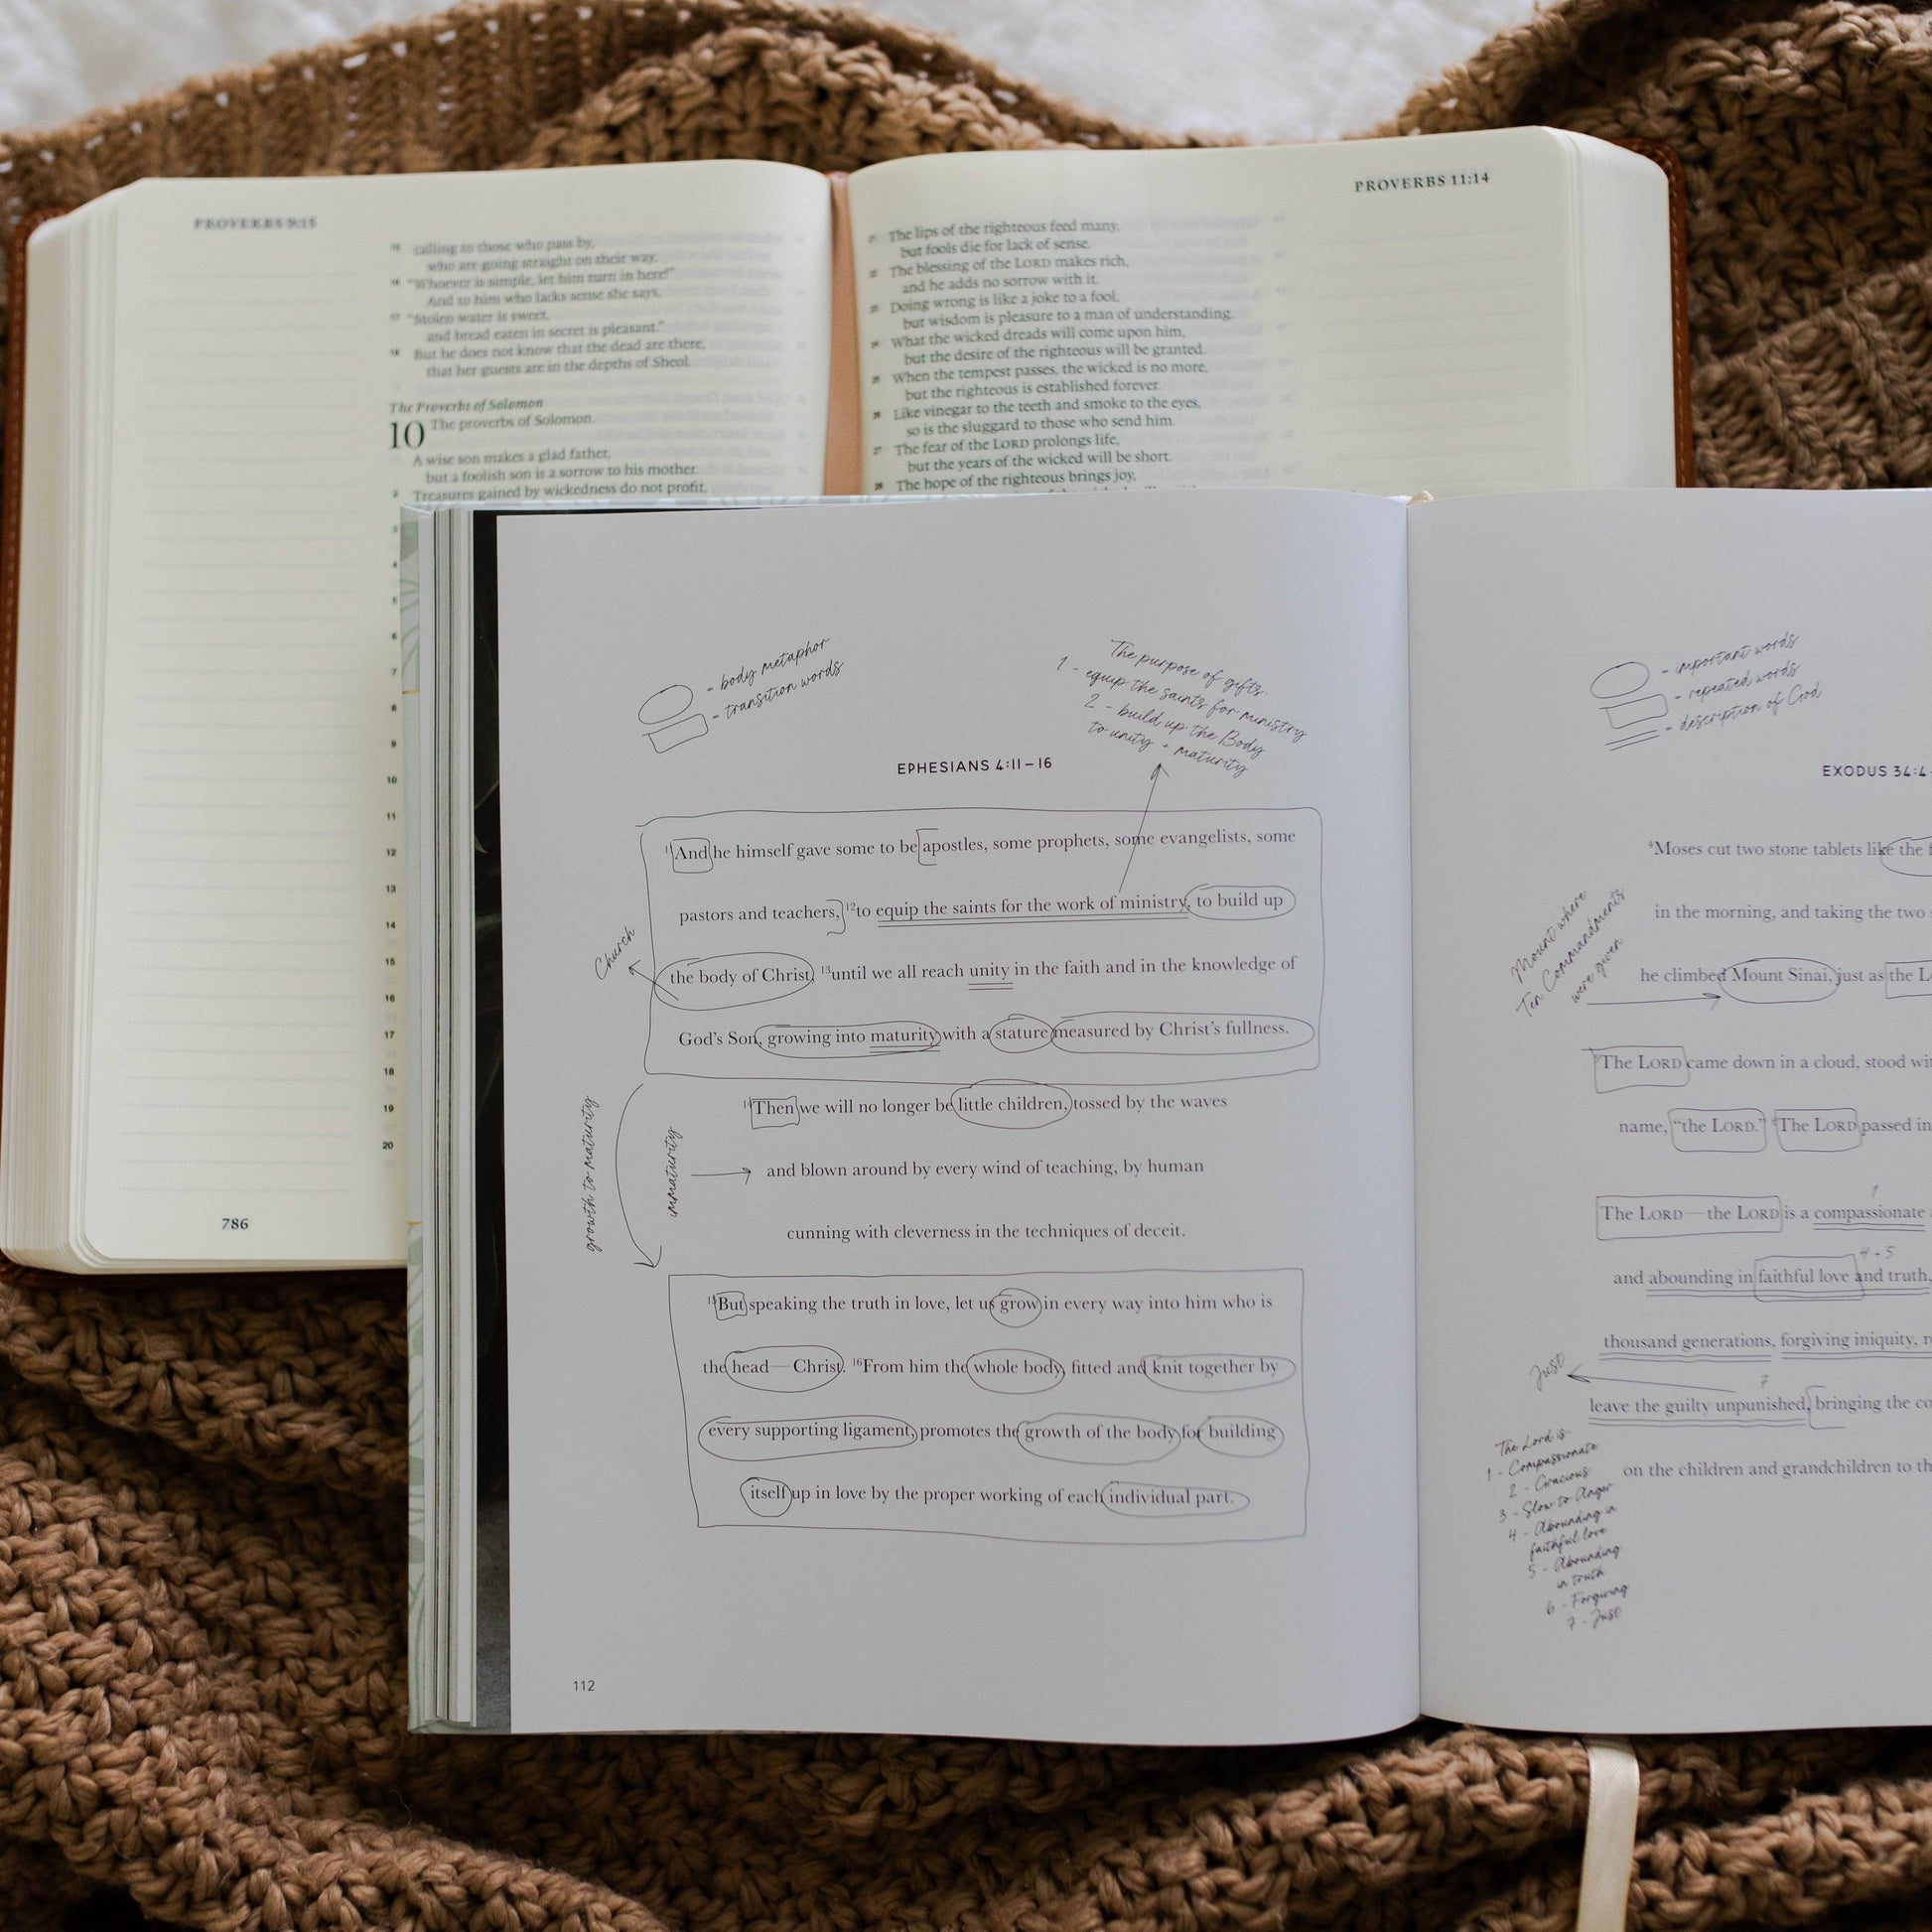 PROVERBS 9:15
15 calling to those who pass by,
who are going straight on their way,
16 "Whoever is simple, let him turn in here!"
And to him who lacks sense she says,
17 "Stolen water is sweet,
and bread eaten in secret is pleasant."
18 But he does not know that the dead are there,
that her guests are in the depths of Sheol.
The Proverbs of Solomon
10 The proverbs of Solomon.
A wise son makes a glad father,
but a foolish son is a sorrow to his mother.
2 Treasures gained by wickedness do not profit,
3
4
5
6
7
8
9
10
11
12
13
14
15
16
17
18
19
20
786
PROVERBS 11:14
21 The lips of the righteous feed many,
but fools die for lack of sense.
22 The blessing of the LORD makes rich,
and he adds no sorrow with it.
23 Doing wrong is like a joke to a fool,
but wisdom is pleasure to a man of understanding.
24 What the wicked dreads will come upon him,
but the desire of the righteous will be granted.
25 When the tempest passes, the wicked is no more,
but the righteous is established forever.
26 Like vinegar to the teeth and smoke to the eyes,
so is the sluggard to those who send him.
27 The fear of the LORD prolongs life,
but the years of the wicked will be short.
28 The hope of the righteous brings joy,
- body metaphor
- transition words
The purpose of gifts:
1 - equip the saints for ministry
2 - build up the Body
to unity + maturity
EPHESIANS 4:11–16
1 And he himself gave some to be apostles, some prophets, some evangelists, some
pastors and teachers, 12 to equip the saints for the work of ministry, to build up
the body of Christ, 13 until we all reach unity in the faith and in the knowledge of
God's Son, growing into maturity with a stature measured by Christ's fullness.
Church
14 Then we will no longer be little children, tossed by the waves
and blown around by every wind of teaching, by human
cunning with cleverness in the techniques of deceit.
growth to maturity
immaturity
15 But speaking the truth in love, let us grow in every way into him who is
the head—Christ. 16 From him the whole body, fitted and knit together by
every supporting ligament, promotes the growth of the body for building
itself up in love by the proper working of each individual part.
112
- important words
- repeated words
- description of God
EXODUS 34:4-
4 Moses cut two stone tablets like the f
in the morning, and taking the two
he climbed Mount Sinai, just as the L
Mount where
Ten Commandments
were given
5 The LORD came down in a cloud, stood wi
name, "the LORD." 6 The LORD passed in
1
The LORD—the LORD is a compassionate
4 + 5
and abounding in faithful love and truth,
thousand generations, forgiving iniquity, r
Just
7
leave the guilty unpunished, bringing the co
on the children and grandchildren to th
The Lord is:
1 - Compassionate
2 - Gracious
3 - Slow to Anger
4 - Abounding in
faithful love
5 - Abounding
in truth
6 - Forgiving
7 - Just